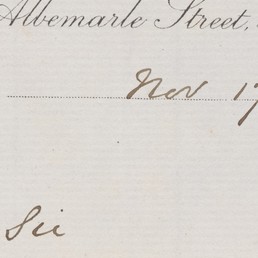 Albemarle Street,
Nov 17
Sir